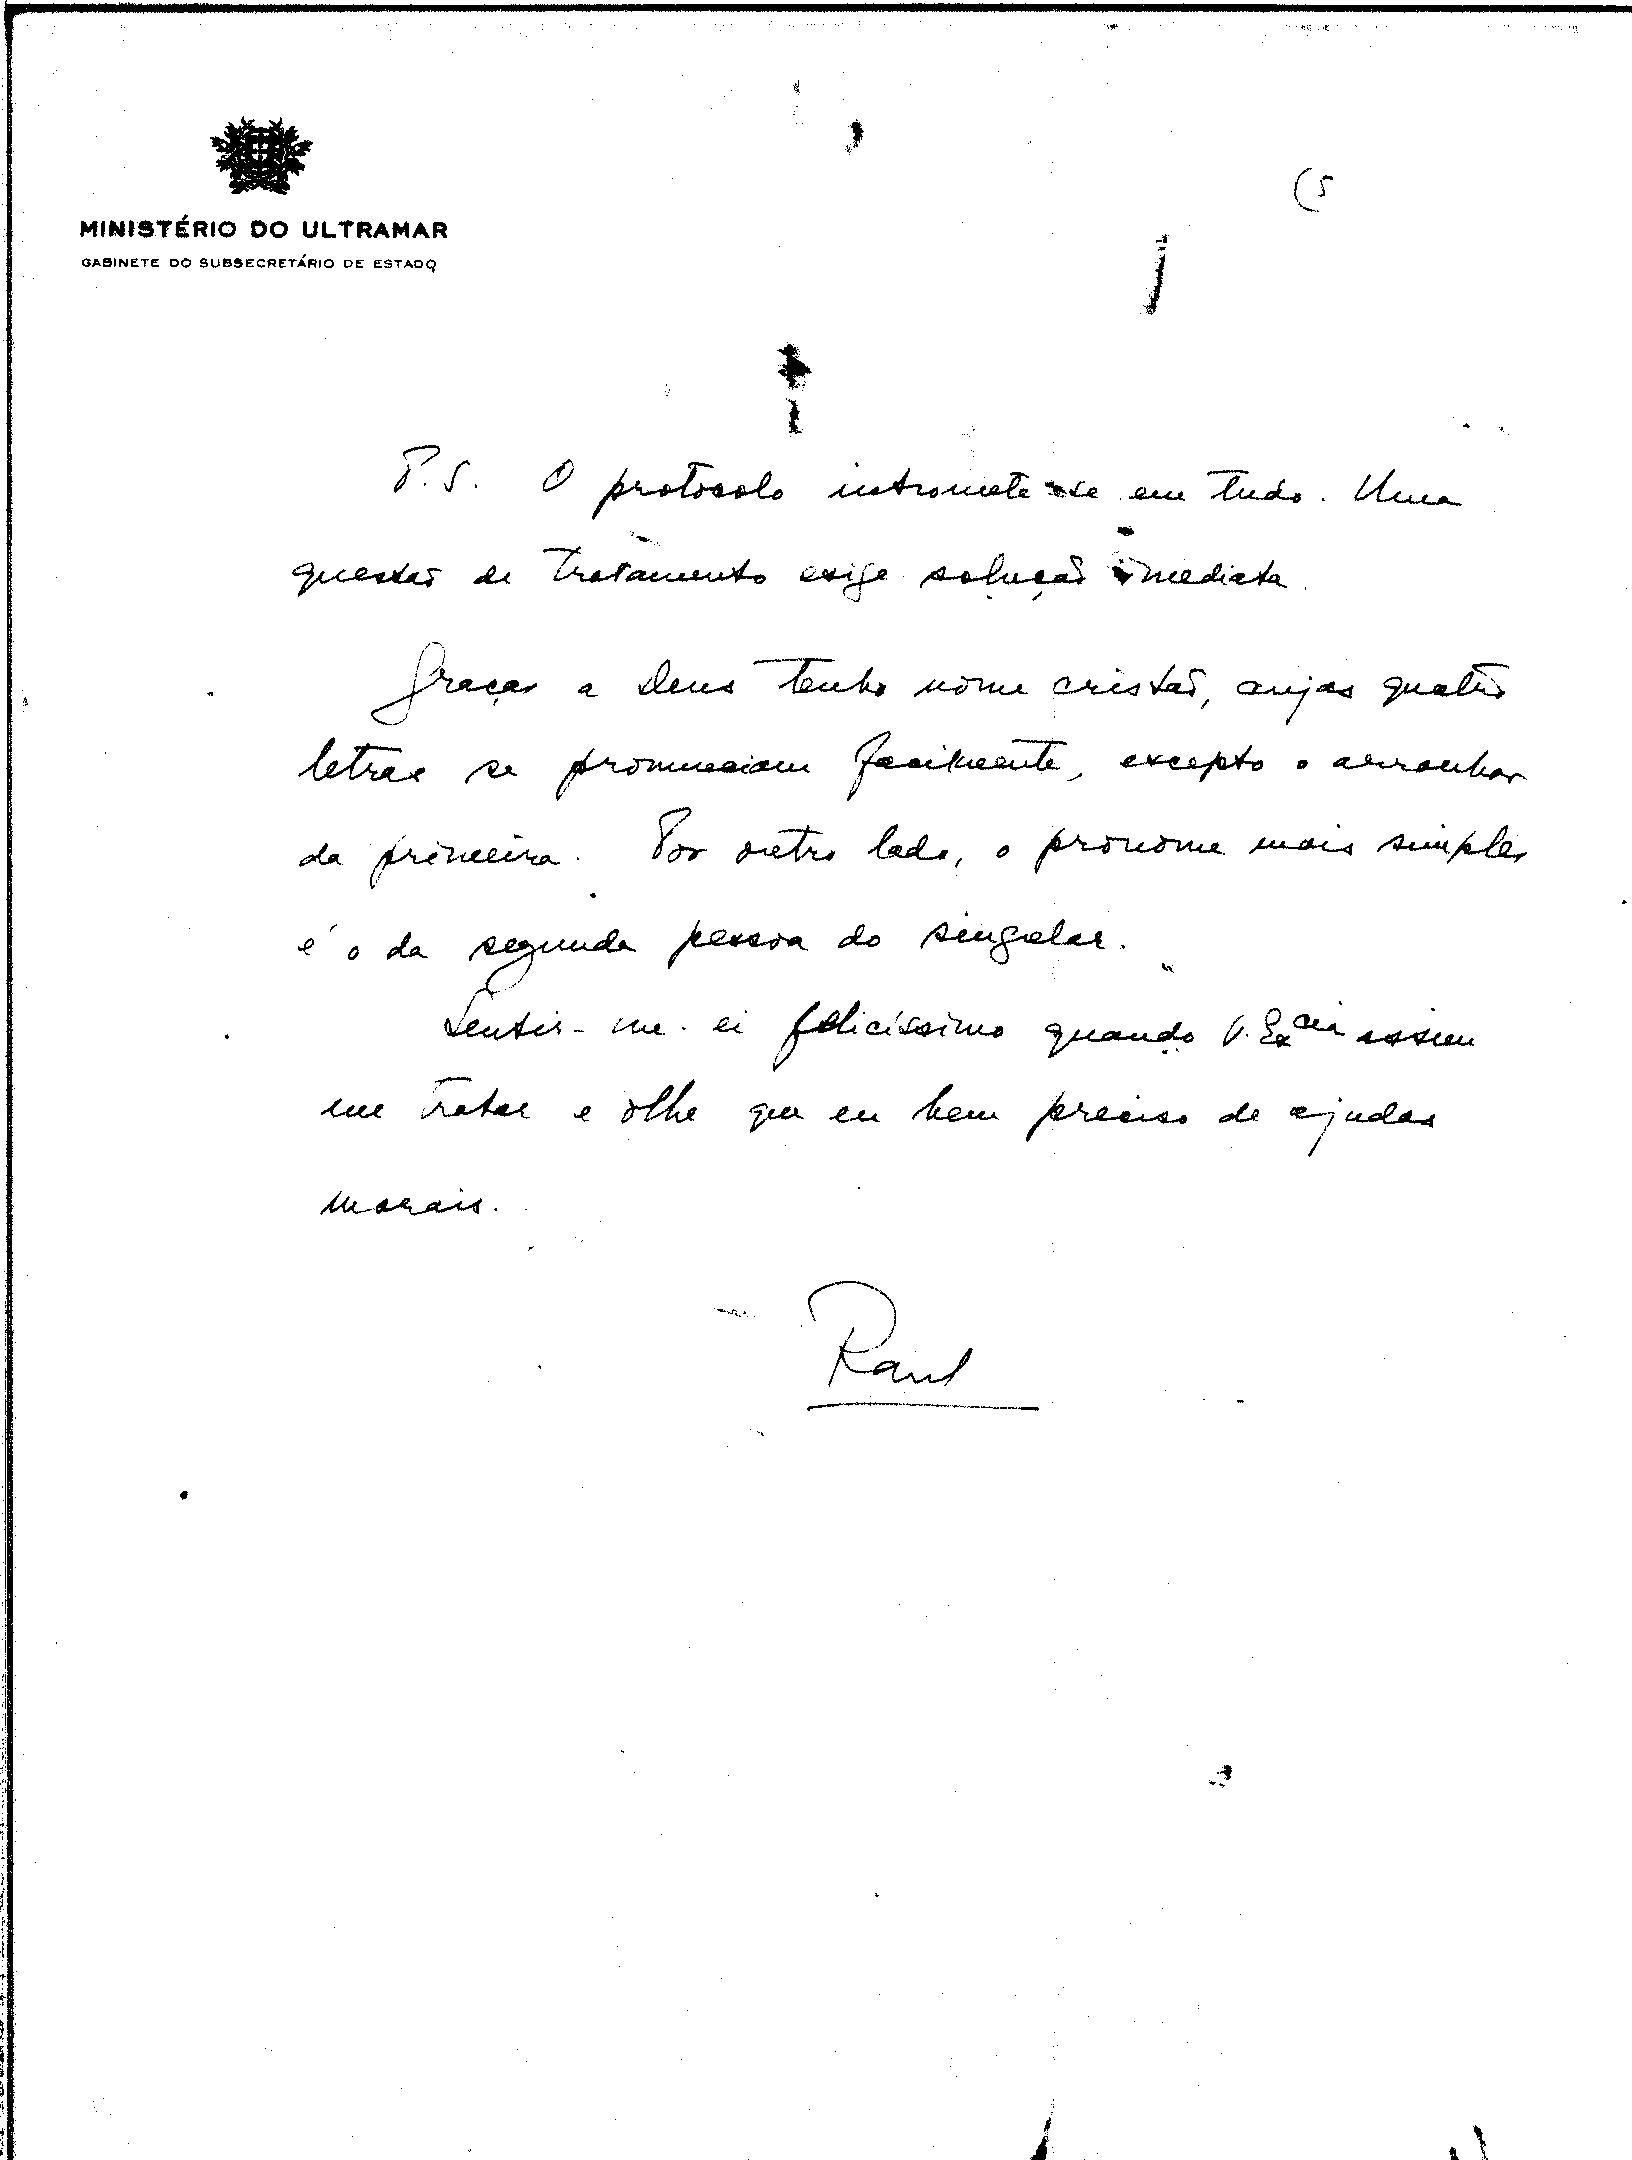 (5
MINISTÉRIO DO ULTRAMAR
GABINETE DO SUBSECRETÁRIO DE ESTADO
P.S. O protocolo intromete-se em tudo. Uma
questão de tratamento exige solução imediata.
Graças a Deus tenho nome cristão, cujas quatro
letras se pronunciam facilmente, excepto o arranhar
da primeira. Por outro lado, o pronome mais simples
é o da segunda pessoa do singular.
Sentir-me-ei felicíssimo quando V. Excia assim
me tratar e olhe que eu bem preciso de ajudas
morais.
Raul